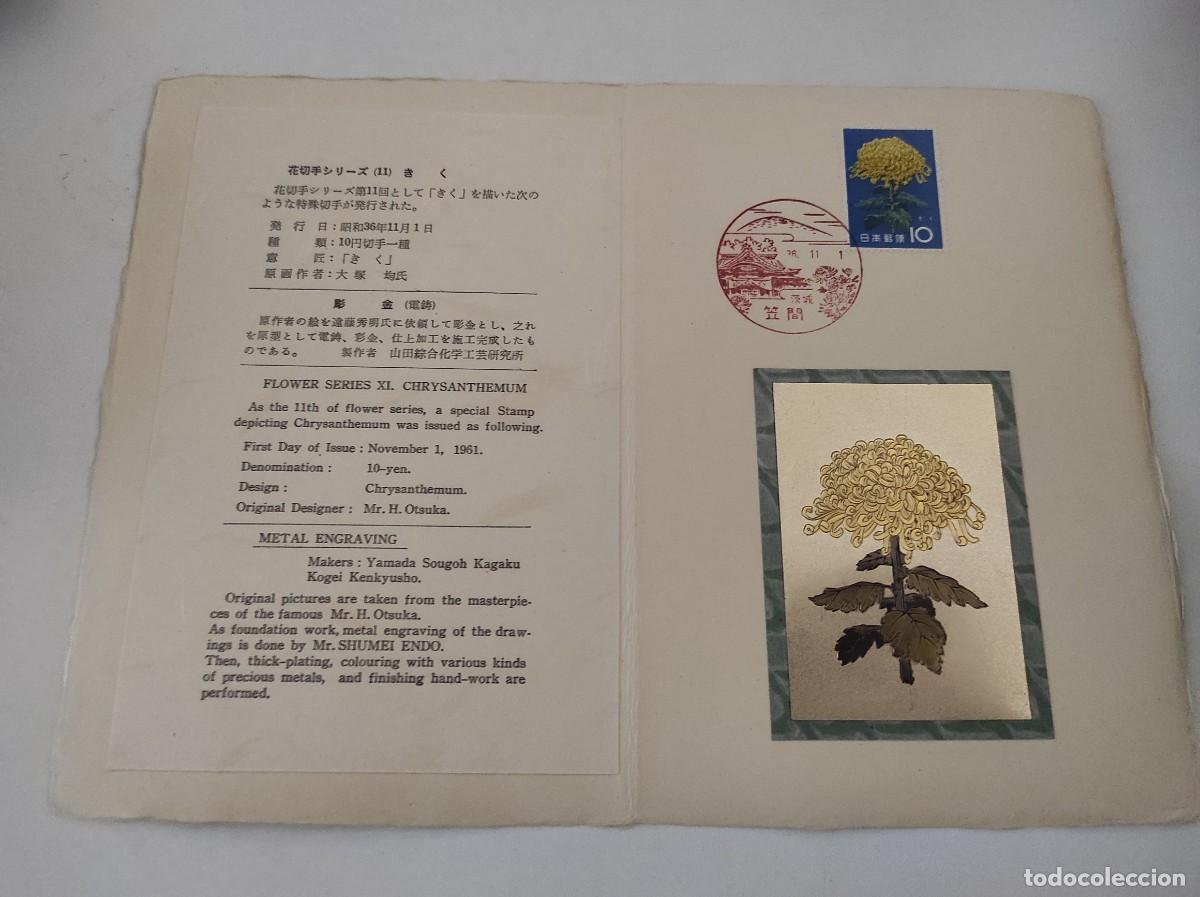 花切手シリーズ (11) き く
花切手シリーズ第11回として「きく」を描いた次の
ような特殊切手が発行された。
発行日：昭和36年11月1日
種類：10円切手一種
意匠：「きく」
原画作者：大塚 均氏
彫金 (電鋳)
原作者の絵を遠藤秀明氏に依頼して彫金とし、之れ
を原型として電鋳、彩金、仕上加工を施工完成したも
のである。 製作者 山田綜合化学工芸研究所
FLOWER SERIES XI. CHRYSANTHEMUM
As the 11th of flower series, a special Stamp
depicting Chrysanthemum was issued as following.
First Day of Issue : November 1, 1961.
Denomination : 10-yen.
Design : Chrysanthemum.
Original Designer : Mr. H. Otsuka.
METAL ENGRAVING
Makers : Yamada Sougoh Kagaku
Kogei Kenkyusho.
Original pictures are taken from the masterpie-
ces of the famous Mr. H. Otsuka.
As foundation work, metal engraving of the draw-
ings is done by Mr. SHUMEI ENDO.
Then, thick-plating, colouring with various kinds
of precious metals, and finishing hand-work are
performed.
きく
日本郵便 10
36. 11. 1
茨城
笠間
todocoleccion